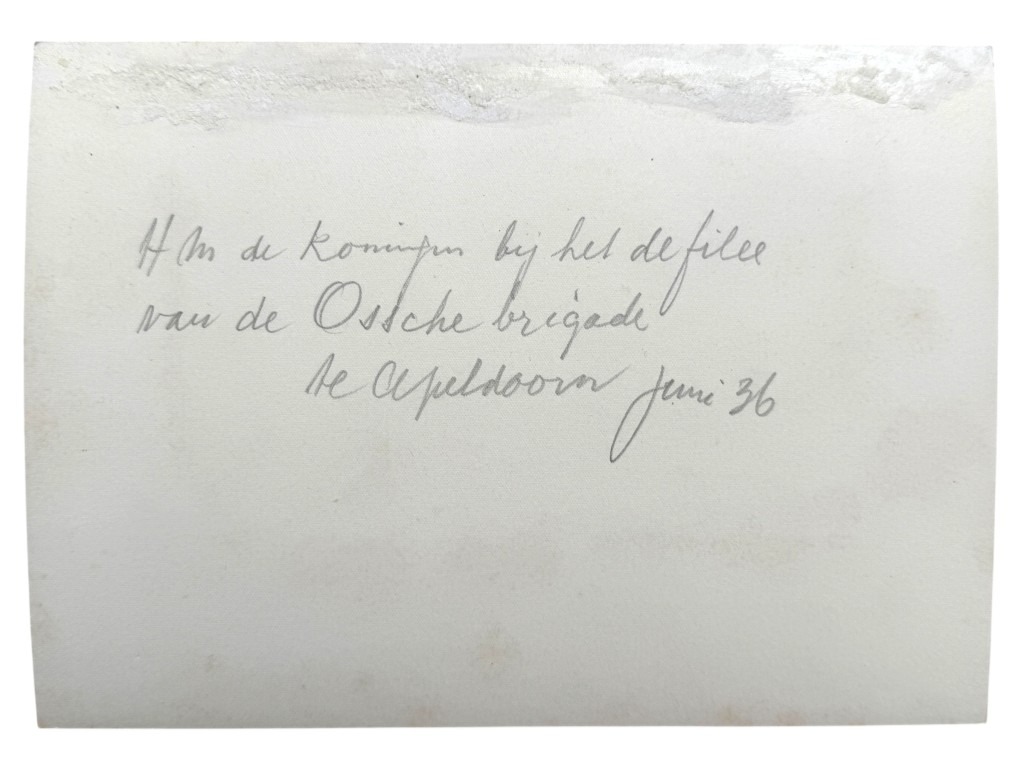 H M de Koningin bij het defilee
van de Ossche brigade
te Apeldoorn Juni 36